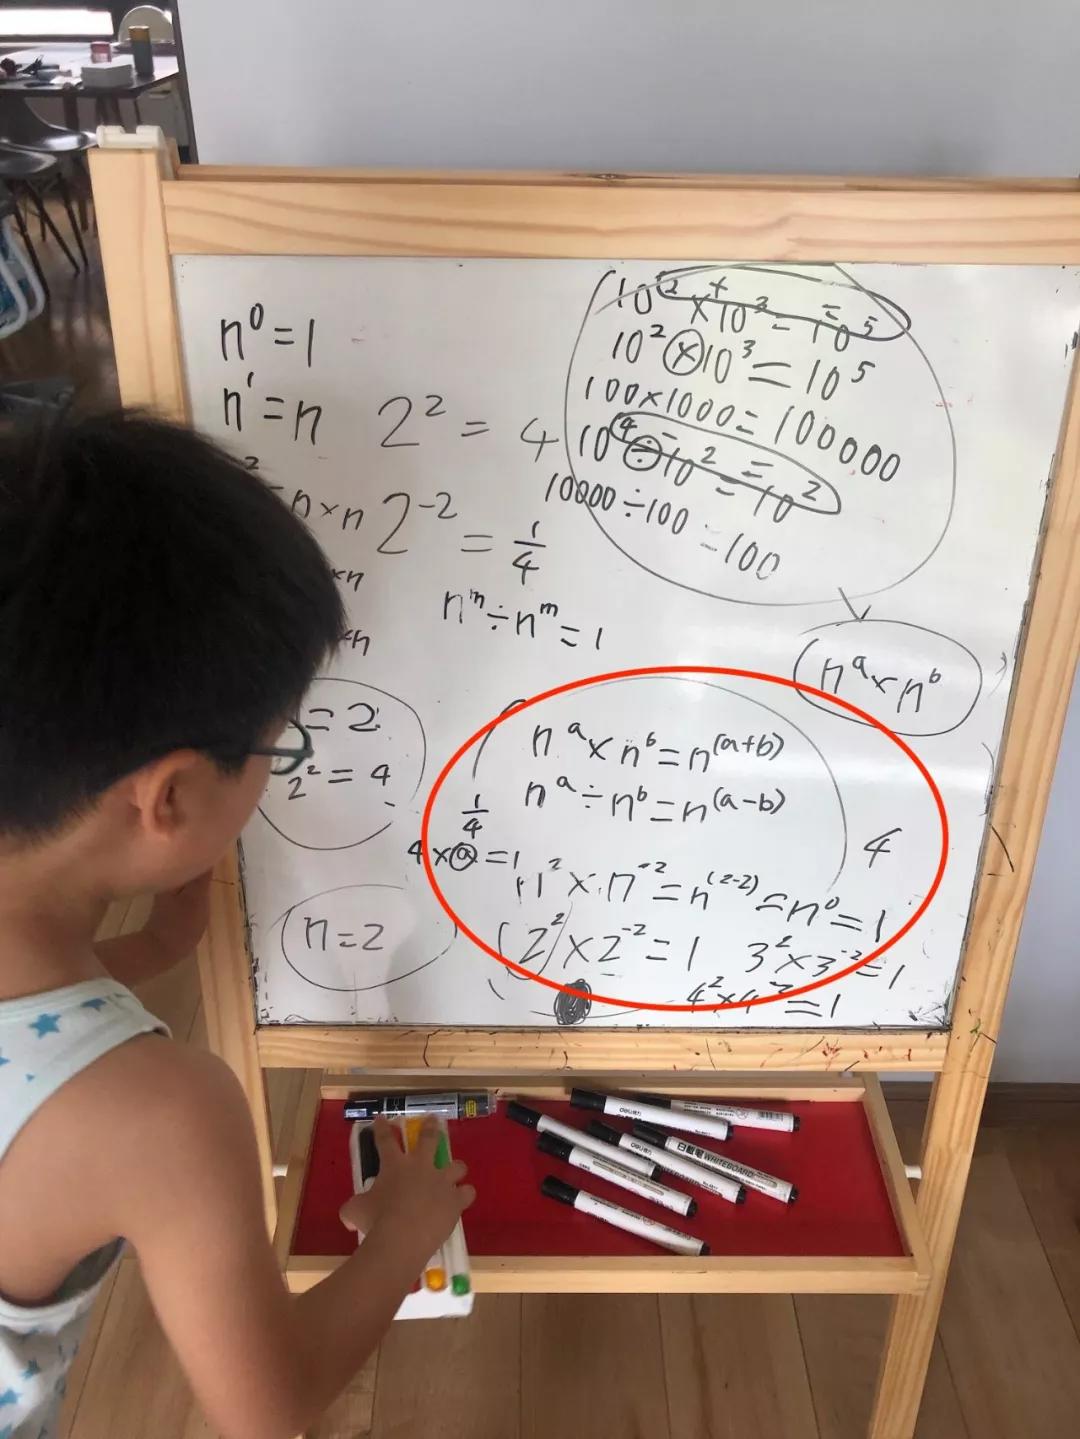 n⁰=1
n¹=n
2²=4
n×n
2⁻²=1/4
×n
×n
nᵐ÷nᵐ=1
=2
2²=4
n=2
10²×10³=10⁵
+
=
10²×10³=10⁵
100×1000=100000
10⁴÷10²=10²
-
=
10000÷100=100
nᵃ×nᵇ
nᵃ×nᵇ=n⁽ᵃ⁺ᵇ⁾
nᵃ÷nᵇ=n⁽ᵃ⁻ᵇ⁾
1/4
4×a=1
4
n²×n⁻²=n⁽²⁻²⁾=n⁰=1
2²×2⁻²=1
3²×3⁻²=1
4²×4⁻²=1
deli得力
白板笔 WHITEBOARD